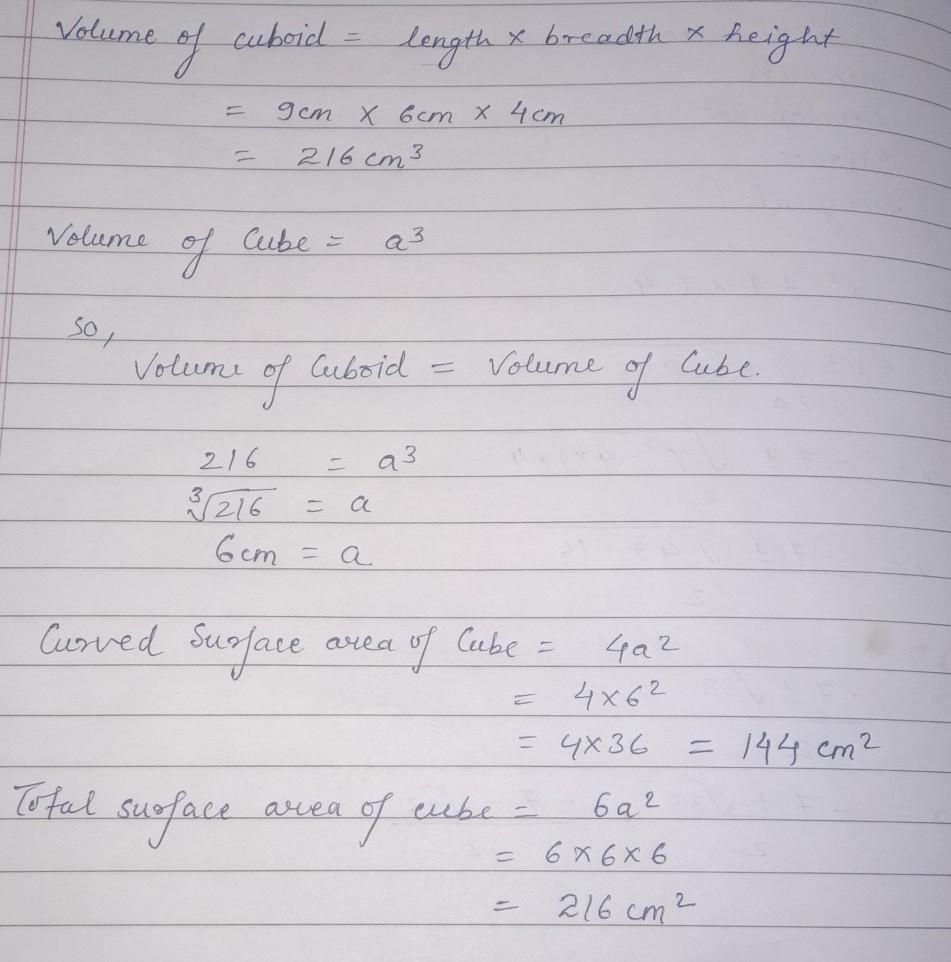 Volume of cuboid = length × breadth × height
= 9cm × 6cm × 4cm
= 216 cm³
Volume of Cube = a³
so,
Volume of Cuboid = Volume of Cube.
216 = a³
∛216 = a
6cm = a
Curved Surface area of Cube = 4a²
= 4×6²
= 4×36 = 144 cm²
Total surface area of cube = 6a²
= 6×6×6
= 216 cm²